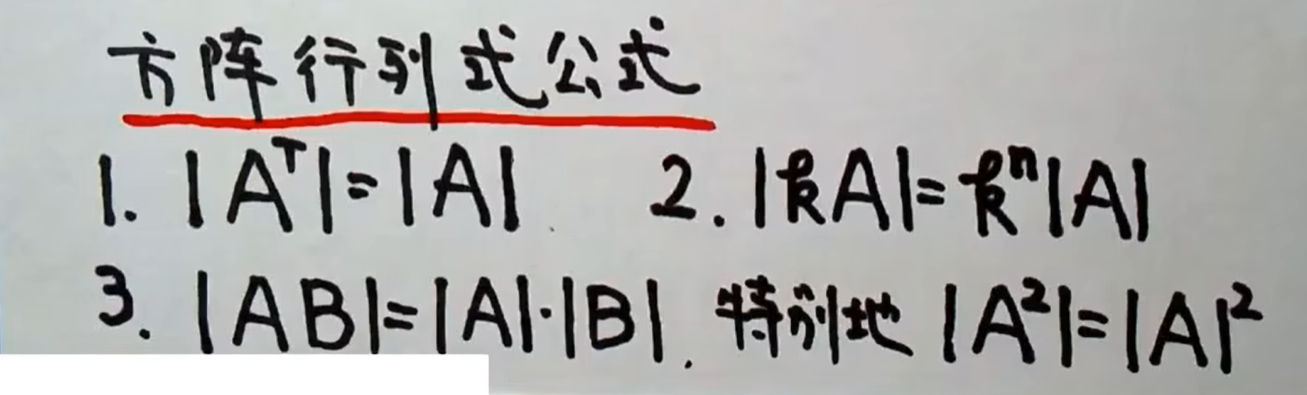 方阵行列式公式
1. |Aᵀ|=|A| 2. |kA|=kⁿ|A|
3. |AB|=|A|·|B|. 特别地 |A²|=|A|²